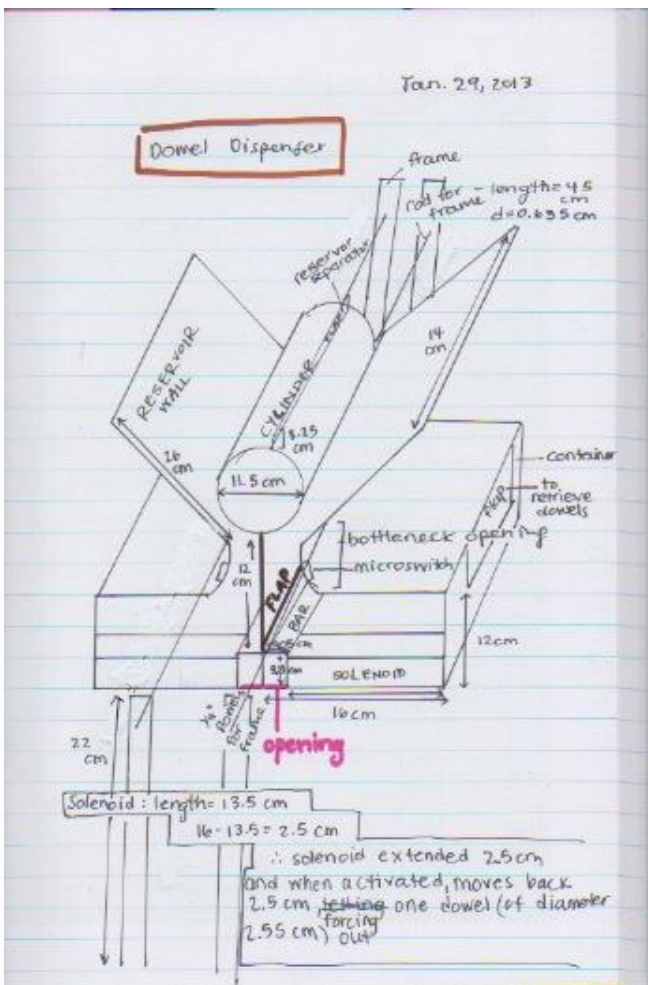 Jan. 29, 2013
Dowel Dispenser
frame
rod for frame - length = 45 cm
d = 0.635 cm
reservoir separator
RESERVOIR WALL
CYLINDER
14 cm
8.25 cm
26 cm
11.5 cm
container
flap to retrieve dowels
bottleneck opening
microswitch
12 cm
FLAP
BAR
12cm
SOLENOID
16cm
1/4" Dowel for frame
opening
22 cm
Solenoid: length= 13.5 cm
16-13.5 = 2.5 cm
∴ solenoid extended 2.5cm
and when activated, moves back
2.5 cm, forcing one dowel (of diameter
2.55 cm) out